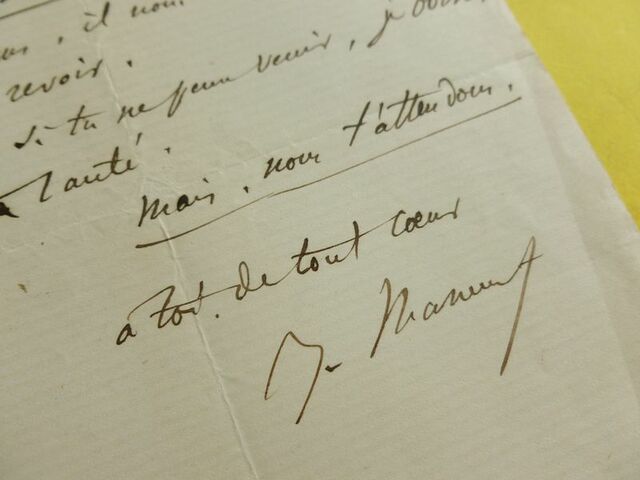 , il nous
revoir.
si tu ne peux venir, je
santé.
Mais, nous t'attendons.
à toi de tout cœur